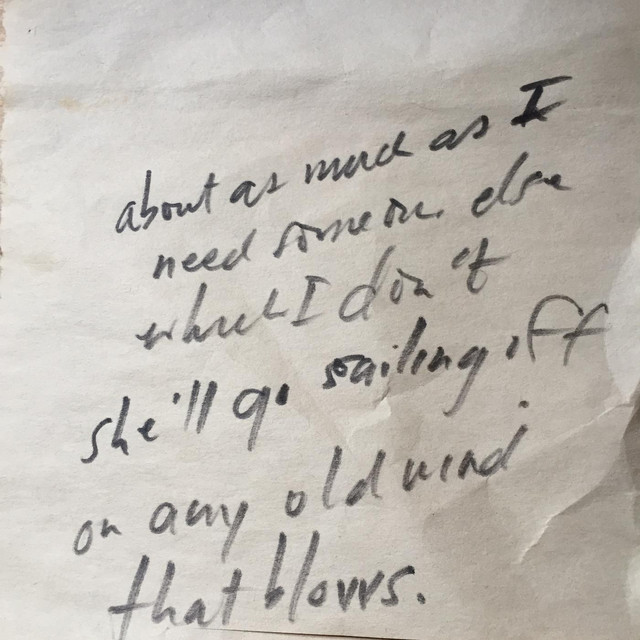 about as much as I
need someone else
which I don't
she'll go sailing off
on any old wind
that blows.